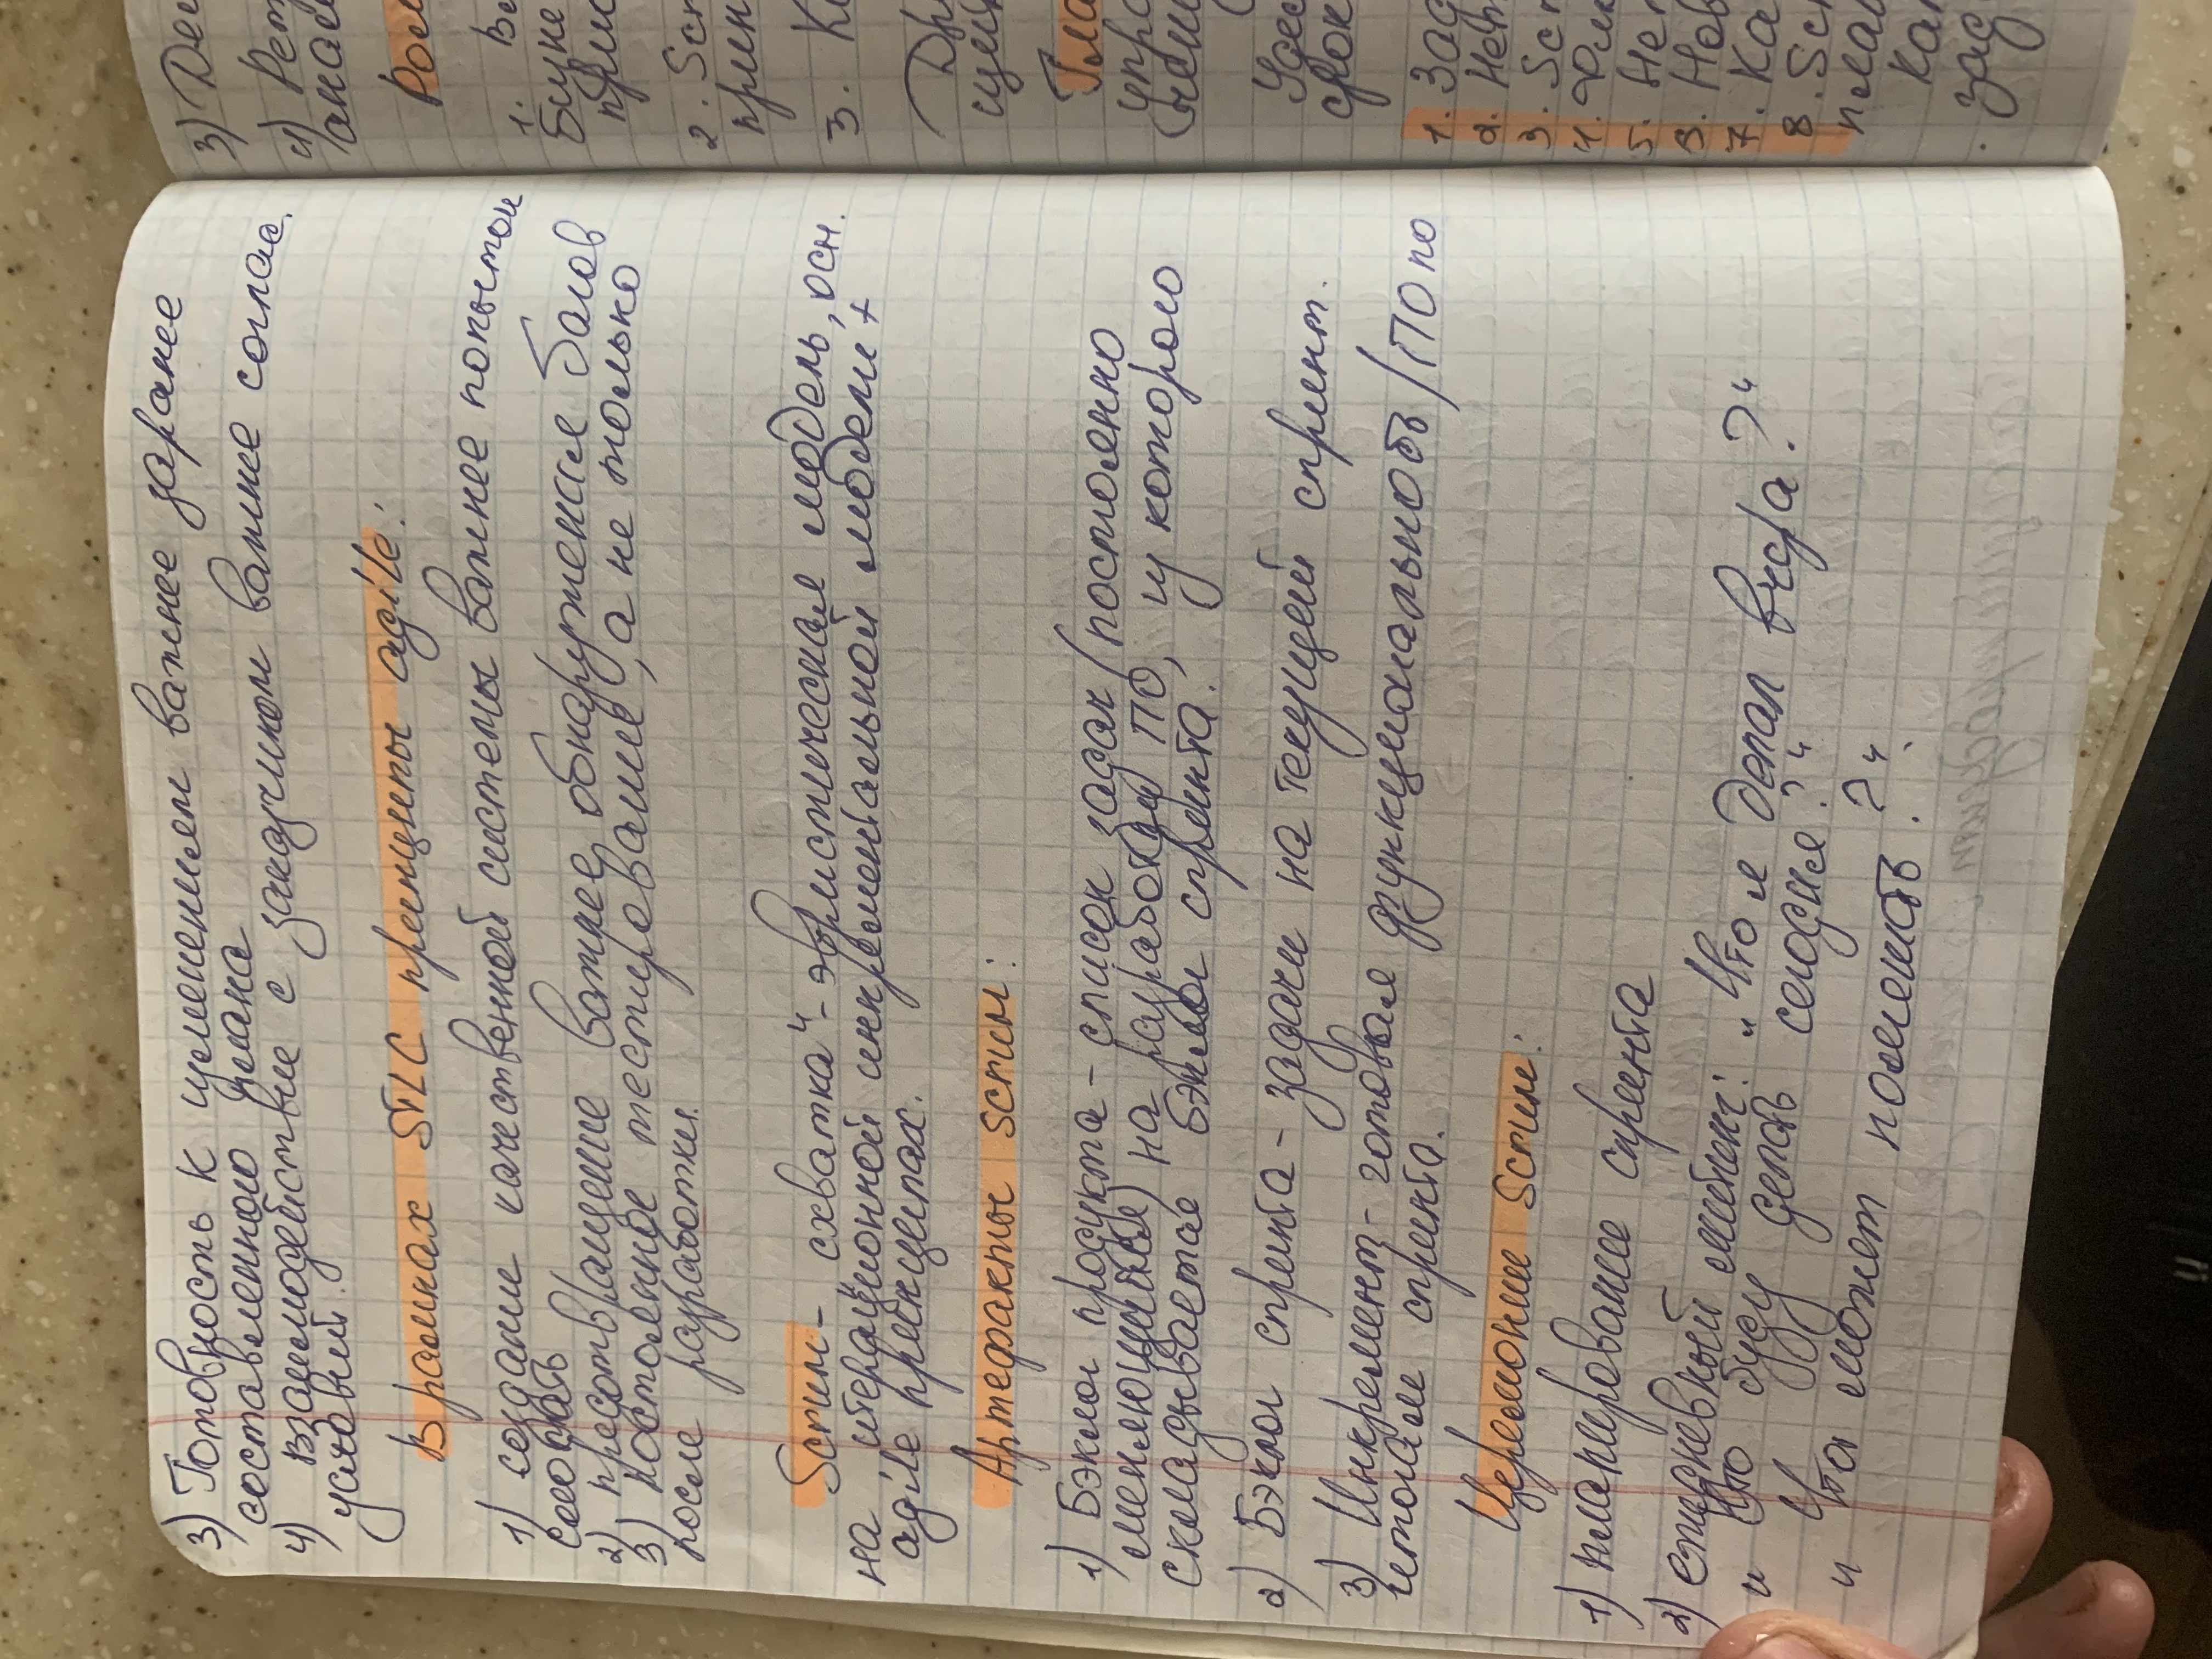 3) Готовность к изменениям важнее заранее
составленного плана
4) взаимодействие с заказчиком важнее соглас.
условий.
В рамках STLC принципы agile:
1) создание качественной системы важнее попыток
сломать
2) предотвращение важнее обнаружения багов
3) постоянное тестирование, а не только
после разработки.
Scrum - „схватка“ - эвристическая модель, осн.
на итерационной инкрементальной модели +
agile принципах.
Артефакты Scrum:
1) Бэклог продукта - список задач (постоянно
меняющийся) на разработку ПО, из которого
складывается бэклог спринта.
2) Бэклог спринта - задачи на текущий спринт.
3) Инкремент - готовая функциональность/ПО по
итогам спринта.
Церемонии Scrum:
1) планирование спринта
2) ежедневный митинг: „Что я делал вчера?“
„Что буду делать сегодня?“
„Что может помешать?“
3)
4)
1.
2.
3. К
1. Зад
2. Нет
3. Scr
4.
5. Не
6. Нов
7. Ка
8. Scr
план
Кан
зад